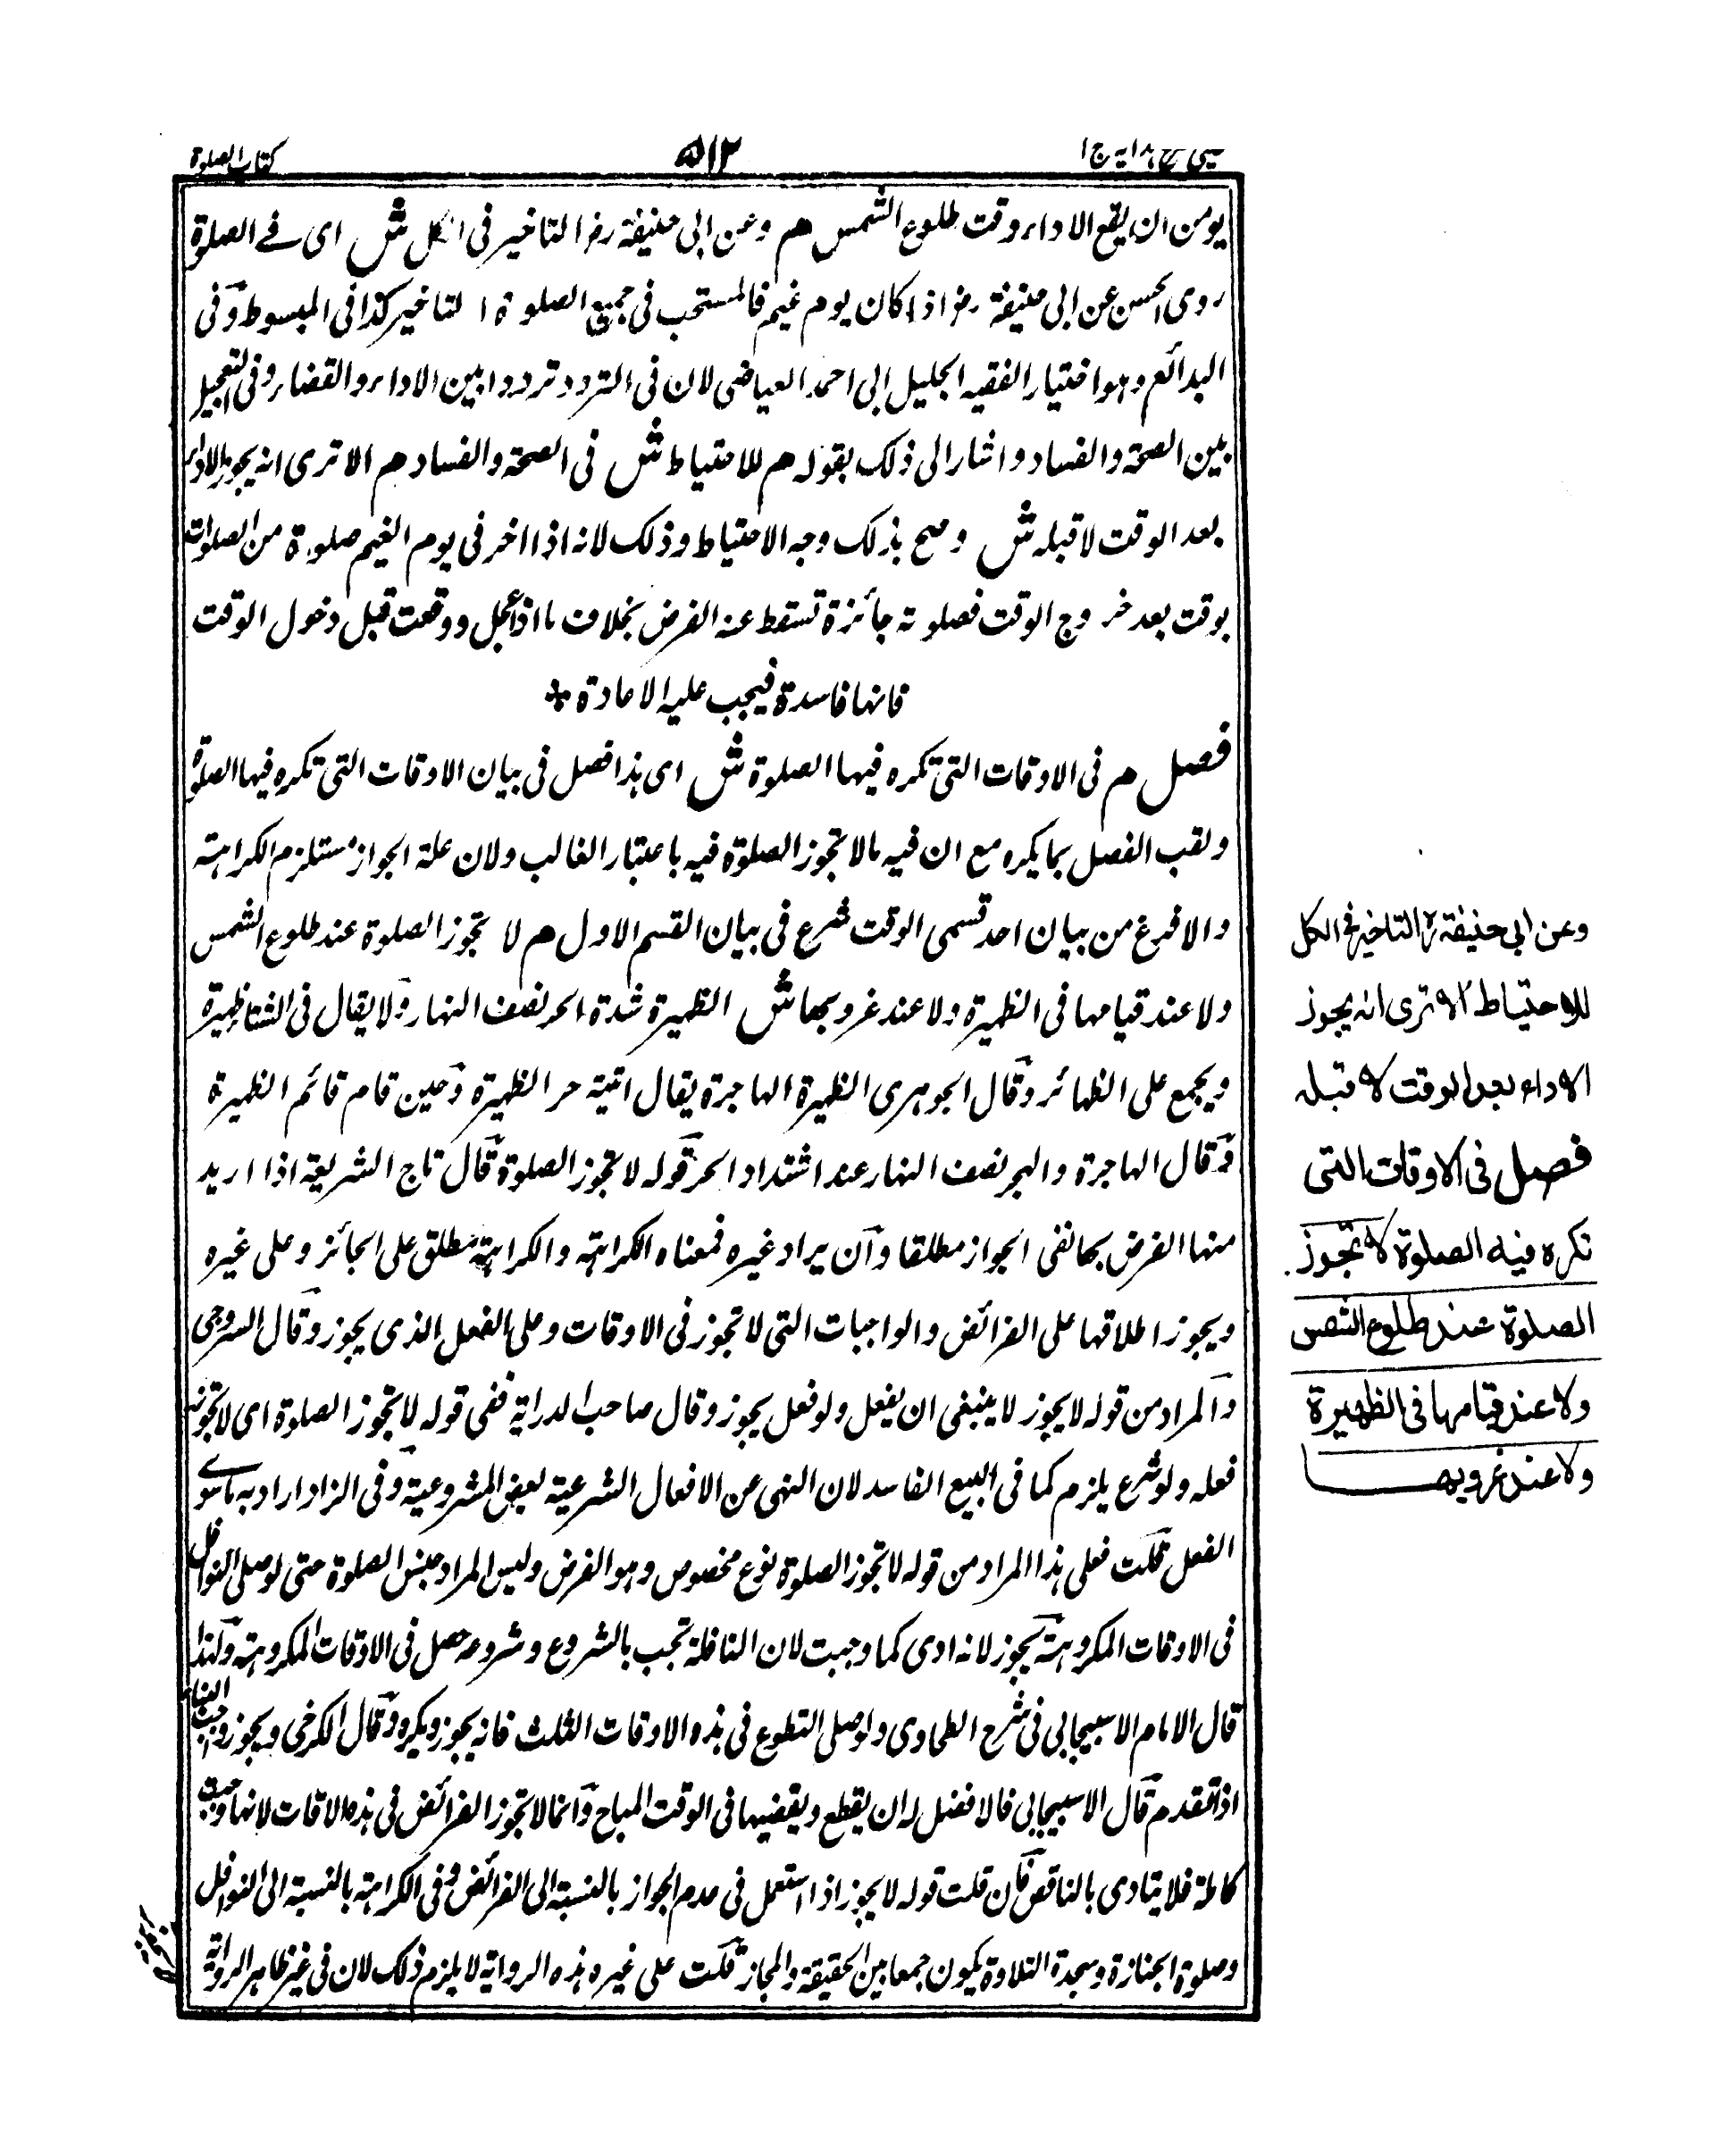 عینی شرح ہدایہ ج ا
۵۱۲
کتاب الصلوة
یومن ان یقع الاداء وقت طلوع الشمس م وعن ابی حنیفة رض التاخیر فی الکل ش ای فے الصلوة
روی الحسن عن ابی حنیفة رض اذا کان یوم غیم فالمستحب فی جمیع الصلوة التاخیر کذا فی المبسوط وفی
البدائع وہو اختیار الفقیہ الجلیل ابی احمد العیاضی لان فی التردد ترددا بین الاداء والقضاء وفی التعجیل
بین الصحة والفساد واشار الی ذلک بقولہ م للاحتیاط ش فی الصحة والفساد م الا تری انہ یجوز الاداء
بعد الوقت لا قبلہ ش وصح بذلک وجہ الاحتیاط وذلک لانہ اذا اخر فی یوم الغیم صلوة من الصلوات
بوقت بعد خروج الوقت فصلوتہ جائزة تسقط عنہ الفرض بخلاف ما اذا عجل ووقعت قبل دخول الوقت
فانہا فاسدة فیجب علیہ الاعادة
فصل م فی الاوقات التی تکرہ فیہا الصلوة ش ای ہذا فصل فی بیان الاوقات التی تکرہ فیہا الصلوة
ولقب الفصل بما یکرہ مع ان فیہ مالا تجوز الصلوة فیہ باعتبار الغالب ولان علة الجواز مستلزم الکراہتہ
والا فرغ من بیان احد قسمی الوقت شرع فی بیان القسم الاول م لا تجوز الصلوة عند طلوع الشمس
ولا عند قیامہا فی الظہیرة ولا عند غروبہا ش الظہیرة شدة الحر نصف النہار ولا یقال فی الشتا ظہیرة
ویجمع علی الظہائر وقال الجوہری الظہیرة الہاجرة یقال اتیتہ حر الظہیرة وحین قام قائم الظہیرة
وقال الہاجرة والہجر نصف النہار عند اشتداد الحر قولہ لا تجوز الصلوة قال تاج الشریعة اذا ارید
منہا الفرض بہا نفی الجواز مطلقا وان یراد غیرہ فمعناہ الکراہتہ والکراہتہ یطلق علی الجائز وعلی غیرہ
ویجوز اطلاقہا علی الفرائض والواجبات التی لا تجوز فی الاوقات وعلی الفعل الذی یجوز وقال السروجی
والمراد من قولہ لا یجوز لا ینبغی ان یفعل ولو فعل یجوز وقال صاحب الدرایة ففی قولہ لا تجوز الصلوة ای لا تجوز
فعلہ ولو شرع یلزم کما فی البیع الفاسد لان النہی عن الافعال الشرعیة یقتضی المشروعیة وفی الزاد اراد بہ ماسوے
الفعل قلت فعلی ہذا المراد من قولہ لا تجوز الصلوة نوع مخصوص وہو الفرض ولیس المراد جنس الصلوة حتی لو صلی النوافل
فی الاوقات المکروہتہ یجوز لانہ ادی کما وجبت لان النافلة تجب بالشروع وشروعہ حصل فی الاوقات المکروہتہ ولہذا
قال الامام الاسبیجابی فی شرح الطحاوی ولو صلی التطوع فی ہذہ الاوقات الثلث فانہ یجوز ویکرہ وقال الکرخی ویجوز واجب
اذا تقدم قال الاسبیجابی فالافضل لہ ان یقطع ویقضیہا فی الوقت المباح وانما لا تجوز الفرائض فی ہذہ الاقات لانہا وجبت
کاملة فلا یتادی بالناقص فان قلت قولہ لا یجوز اذا استعمل فی عدم الجواز بالنسبة الی الفرائض وفی الکراہتہ بالنسبة الی النوافل
وصلوة الجنازة وسجدة التلاوة یکون جمعا بین الحقیقة والمجاز قلت علی غیرہ ہذہ الروایة لا یلزم ذلک لان فی غیر ظاہر الروایة
وعن ابی حنیفة رح التاخیر فی الکل
للاحتیاط الا تری انہ یجوز
الاداء بعد الوقت لا قبلہ
فصل فی الاوقات التی
تکرہ فیہ الصلوة لا تجوز
الصلوة عند طلوع الشمس
ولا عند قیامہا فی الظہیرة
ولا عند غروبہا